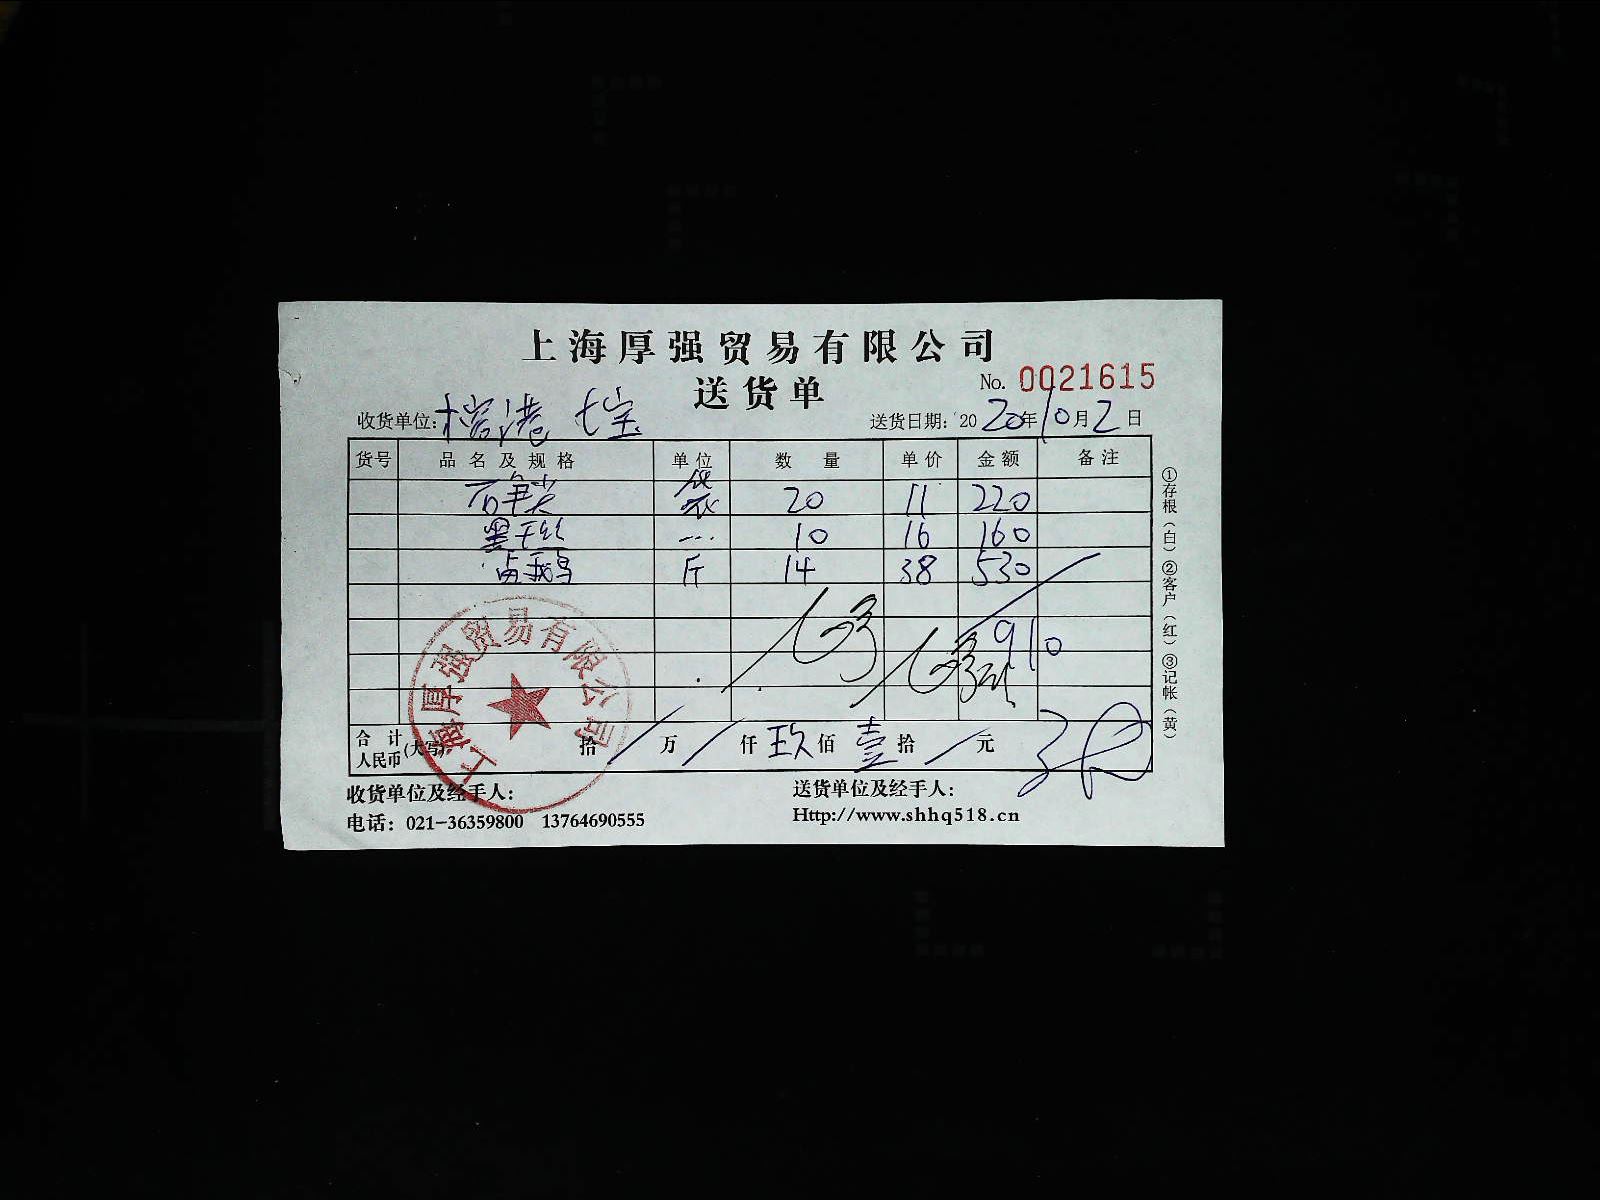 上海厚强贸易有限公司
送货单
No. 0021615
收货单位: 七宝
送货日期: 2020年10月2日
货号 品名及规格 单位 数量 单价 金额 备注
袋 20 11 220
黑千丝 10 16 160
卤鹅 斤 14 38 530
910
合计人民币(大写) 拾 / 万 / 仟 玖 佰 壹 拾 / 元
收货单位及经手人:
送货单位及经手人:
电话: 021-36359800 13764690555
Http://www.shhq518.cn
①存根(白)②客户(红)③记帐(黄)
上海厚强贸易有限公司